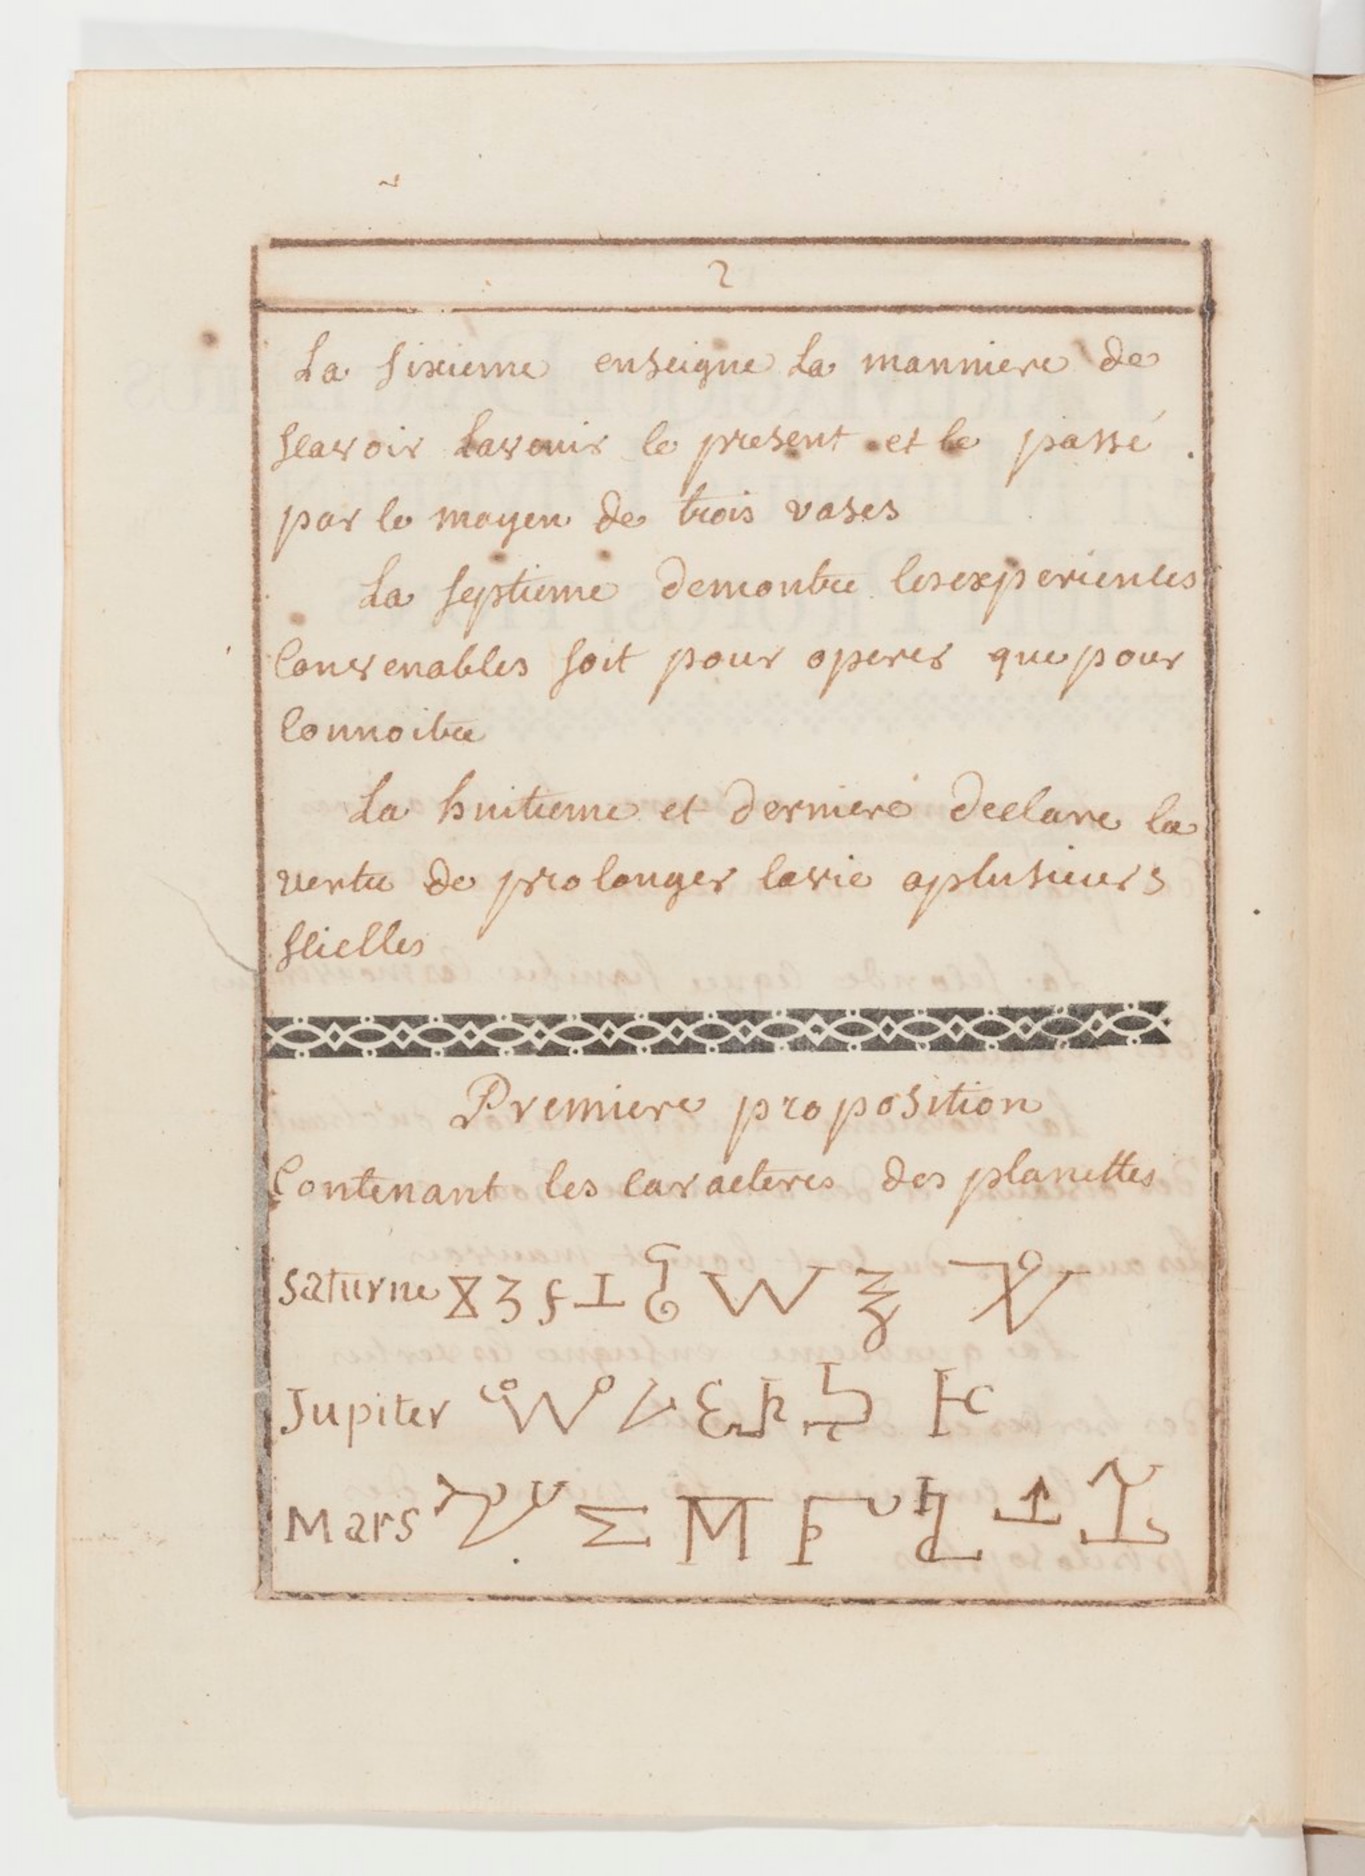 2
La sixieme enseigne La manniere de
scavoir Lavenir le présent et le passé.
par le moyen de trois vases
La septieme demontre les experiences
Convenables soit pour operer que pour
Connoitre
La huitieme et derniere declare la
vertu de prolonger lavie aplusieurs
scielles
Premiere proposition
Contenant les caracteres des planettes
Saturne
Jupiter
Mars